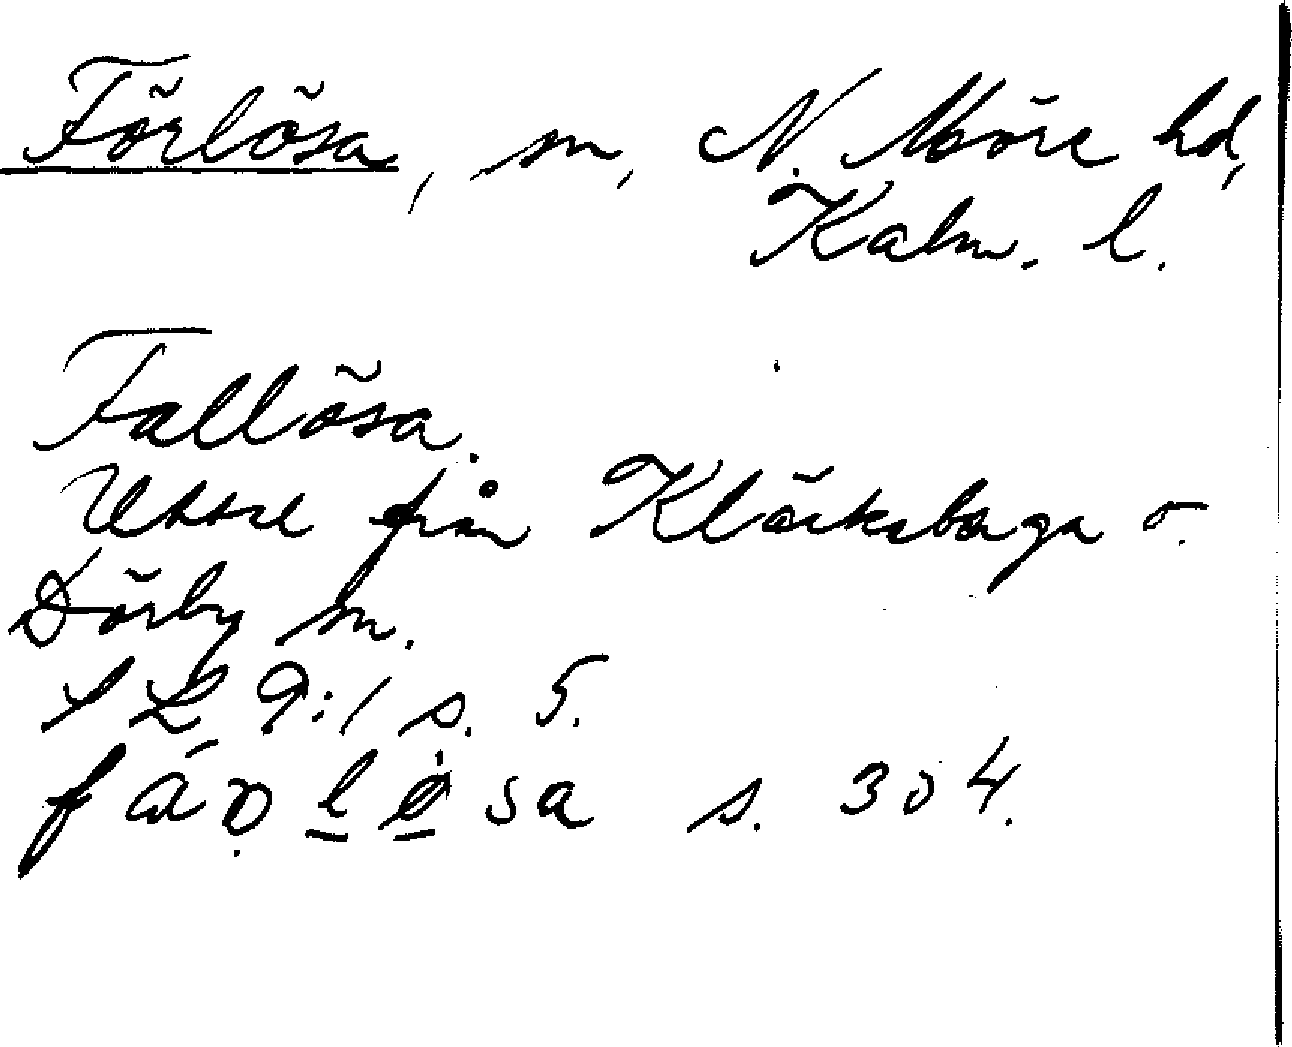 Förlösa, sn, N. Möre hd,
Kalm. l.
Fallösa.
Uttal från Kläckeberga o.
Dörby sn.
SL 9:1 s. 5.
s. 304.